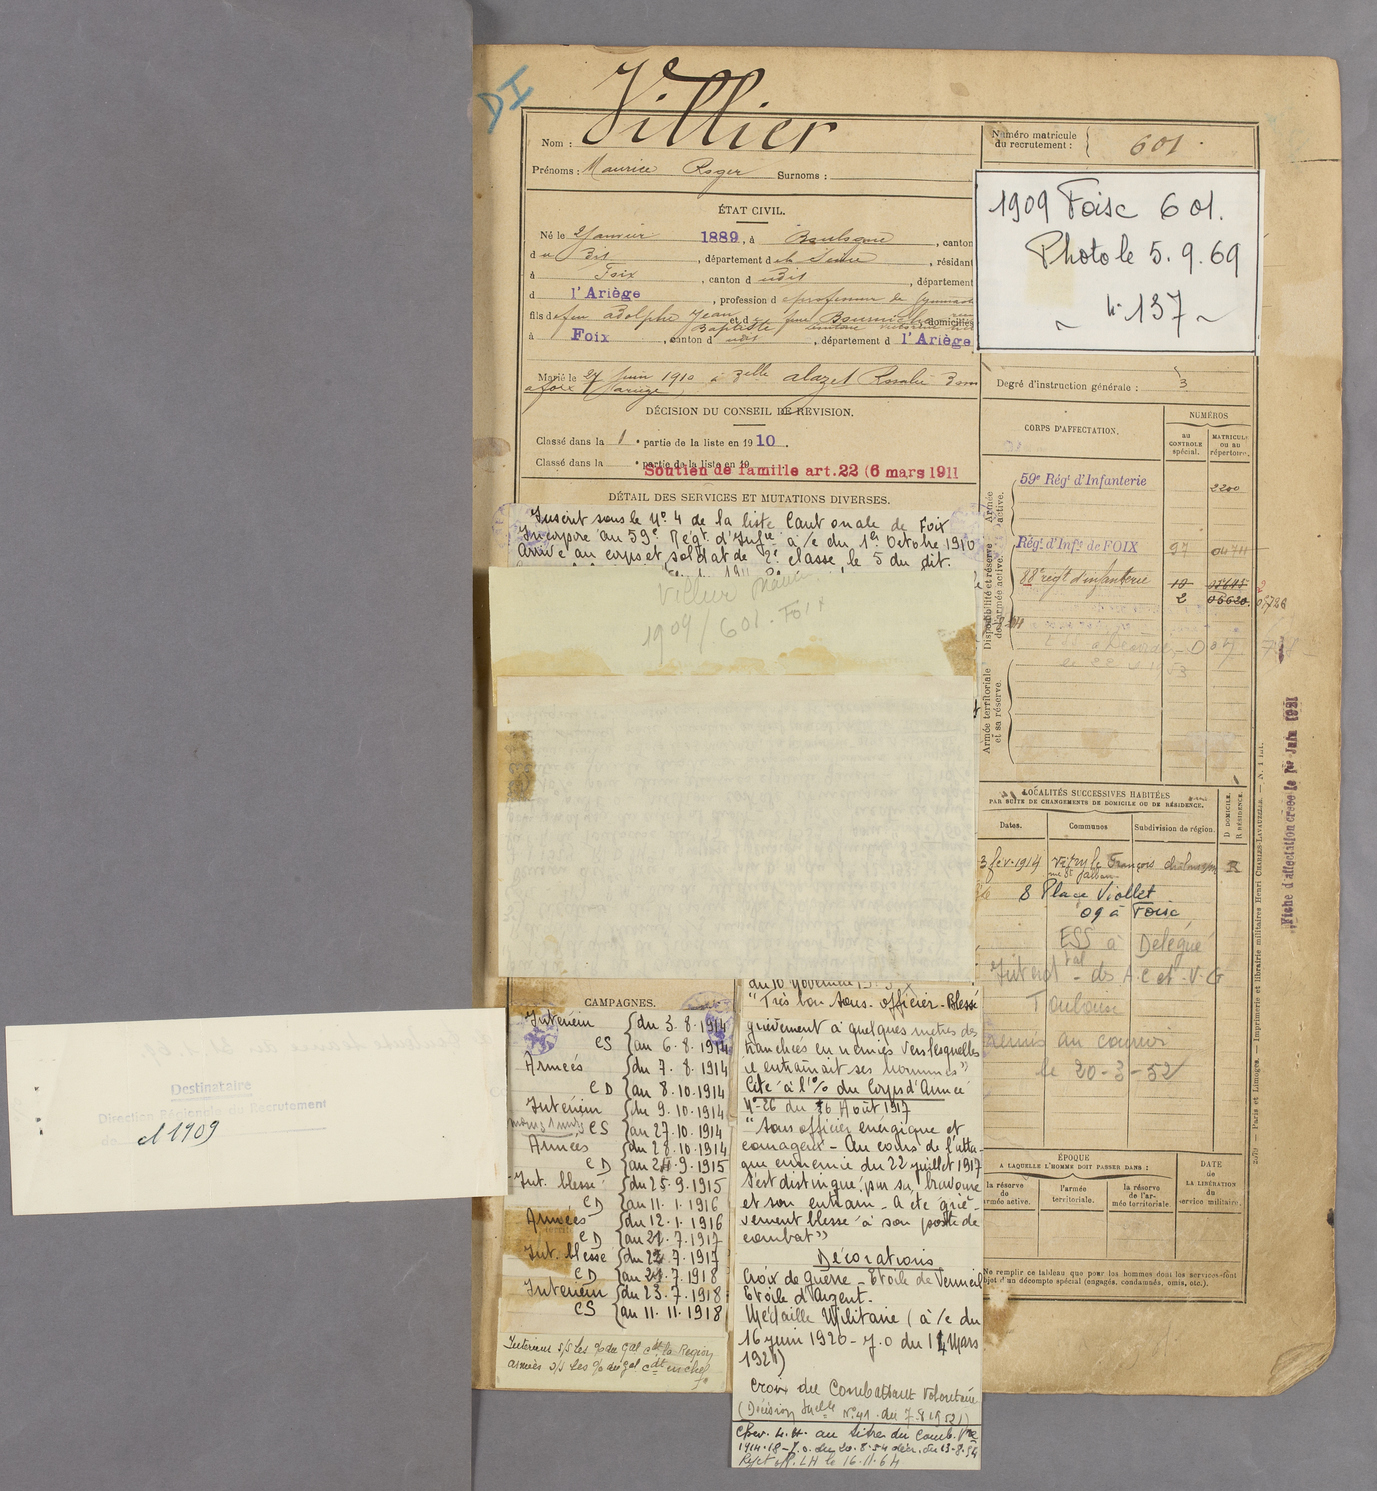 DI
Villier
Nom :
Prénoms : Maurice Roger Surnoms :
Numéro matricule
du recrutement : 601
1909 Foix 601.
Photo le 5.9.69
n° 137
ÉTAT CIVIL.
Né le 2 Janvier 1889, à Boulogne, canton
du dit, département de la Seine, résidant
à Foix, canton d udit, département
d l'Ariège, profession d professeur de
fils de feu Adolphe Jean Baptiste et de domiciliés
à Foix, canton d udit, département d l'Ariège
Marié le 27 Juin 1910 à Delle Alazet Rosalie
à Foix (Ariège)
DÉCISION DU CONSEIL DE REVISION.
Classé dans la 1 e partie de la liste en 1910.
Classé dans la e partie de la liste en 19
Soutien de famille art. 22 (6 mars 1911
DÉTAIL DES SERVICES ET MUTATIONS DIVERSES.
Inscrit sous le N° 4 de la liste Cantonale de Foix
Incorporé au 59e Régt d'Infie à /c du 1er Octobre 1910
Arrivé au corps et soldat de 2e classe, le 5 du dit.
Villier
1909/601. Foix
Degré d'instruction générale : 3
CORPS D'AFFECTATION.
NUMÉROS
au
CONTROLE
spécial.
MATRICULE
OU AU
répertoire.
Armée
active.
59e Régt d'Infanterie 2200
Disponibilité et réserve
de l'armée active.
Régt d'Infie de FOIX 97 0474
88e régt d'infanterie 10 05645
2 06620
Armée territoriale
et sa réserve.
LOCALITÉS SUCCESSIVES HABITÉES
PAR SUITE DE CHANGEMENTS DE DOMICILE OU DE RÉSIDENCE.
Dates. Communes Subdivision de région. D DOMICILE. R RÉSIDENCE.
3 fév. 1914 Vitry le François R
8 Place Viollet
09 à Foix
ESS à Délégué
Interdtal des A.C et V.G
Toulouse
remis au courrier
le 20-3-52
ÉPOQUE
A LAQUELLE L'HOMME DOIT PASSER DANS :
DATE
de
LA LIBÉRATION
du
service militaire.
la réserve
de
armée active.
l'armée
territoriale.
la réserve
de l'ar-
mée territoriale.
Ne remplir ce tableau que pour les hommes dont les services font
objet d'un décompte spécial (engagés, condamnés, omis, etc.).
Fiche d'affectation créée le 1er Juin 1931
Paris et Limoges. — Imprimerie et librairie militaires Henri CHARLES-LAVAUZELLE.
Destinataire
Direction Régionale du Recrutement
de
cl 1909
CAMPAGNES.
Intérieur { du 3.8.1914
CS au 6.8.1914
Armées { du 7.8.1914
CD au 8.10.1914
Intérieur { du 9.10.1914
moins 1 mois CS au 27.10.1914
Armées { du 28.10.1914
CD au 24.9.1915
Int. blessé { du 25.9.1915
CD au 11.1.1916
Armées { du 12.1.1916
CD au 21.7.1917
Int. blessé { du 22.7.1917
CD au 22.7.1918
Intérieur { du 23.7.1918
CS au 11.11.1918
Intérieur s/s les % du Gal Cdt la Région
Armées s/s les % du Gal Cdt en chef
"Très bon sous-officier - Blessé
grièvement à quelques mètres des
tranchées ennemies vers lesquelles
il entraînait ses hommes"
Cité à l'% du Corps d'Armée
N° 26 du 16 Août 1917
"Sous officier énergique et
courageux - Au cours de l'atta-
que ennemie du 22 juillet 1917
s'est distingué par sa bravoure
et son entrain - A été griè-
vement blessé à son poste de
combat"
Décorations
Croix de guerre - Etoile de Vermeil
Etoile d'Argent.
Médaille Militaire (à /c du
16 juin 1920 - J.O du 14 Mars
1921)
Croix du Combattant Volontaire
(Décision Mlle N° 41 du 7.8.1952)
Chev. L.H. au titre du Comb. Vre
1914-18 - J.O. du 20.8.54 décr. du 13.8.54
Rejet off. LH le 16.11.64